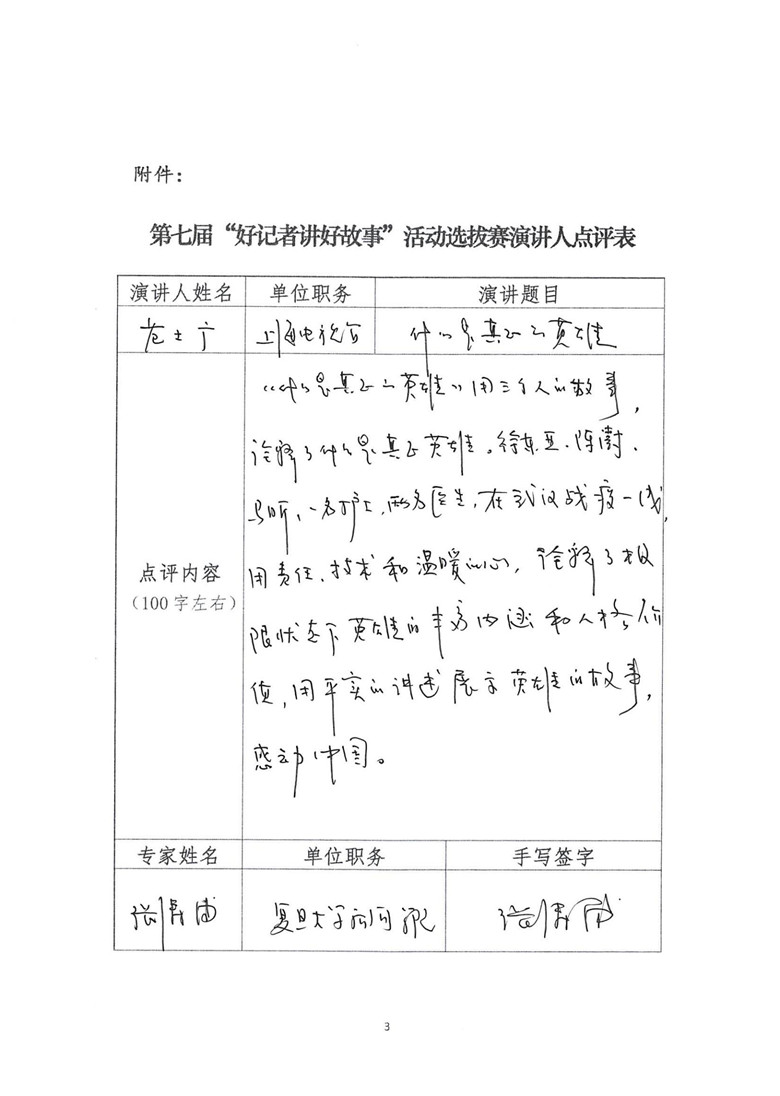 附件：
第七届“好记者讲好故事”活动选拔赛演讲人点评表
演讲人姓名 单位职务 演讲题目
范士广 上海电视台 什么是真正的英雄
点评内容
（100字左右）
《什么是真正的英雄》用三个人的故事，
诠释了什么是真正英雄。徐东亚、陈尉、
马昕，一名护士，两名医生，在武汉战疫一线，
用责任、技术和温暖的心，诠释了极
限状态下英雄的丰富内涵和人格价
值，用平实的讲述展示英雄的故事，
感动中国。
专家姓名 单位职务 手写签字
复旦大学新闻
3